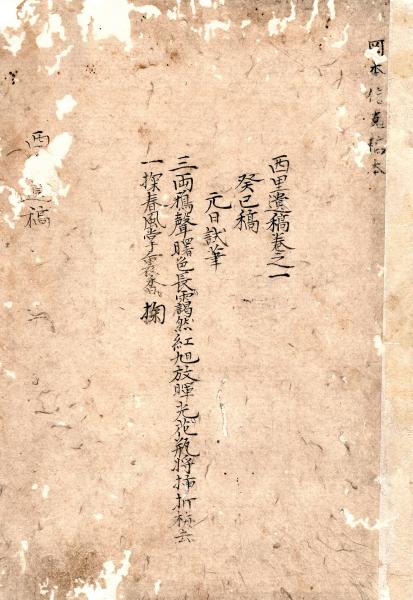 岡本信稿本
西里遺稿卷之一
癸巳稿
元日試筆
三兩鴉聲曙色長靄然紅旭放暉光花瓶將揷折梅去
一探春風掌裏香 掬
西遺稿